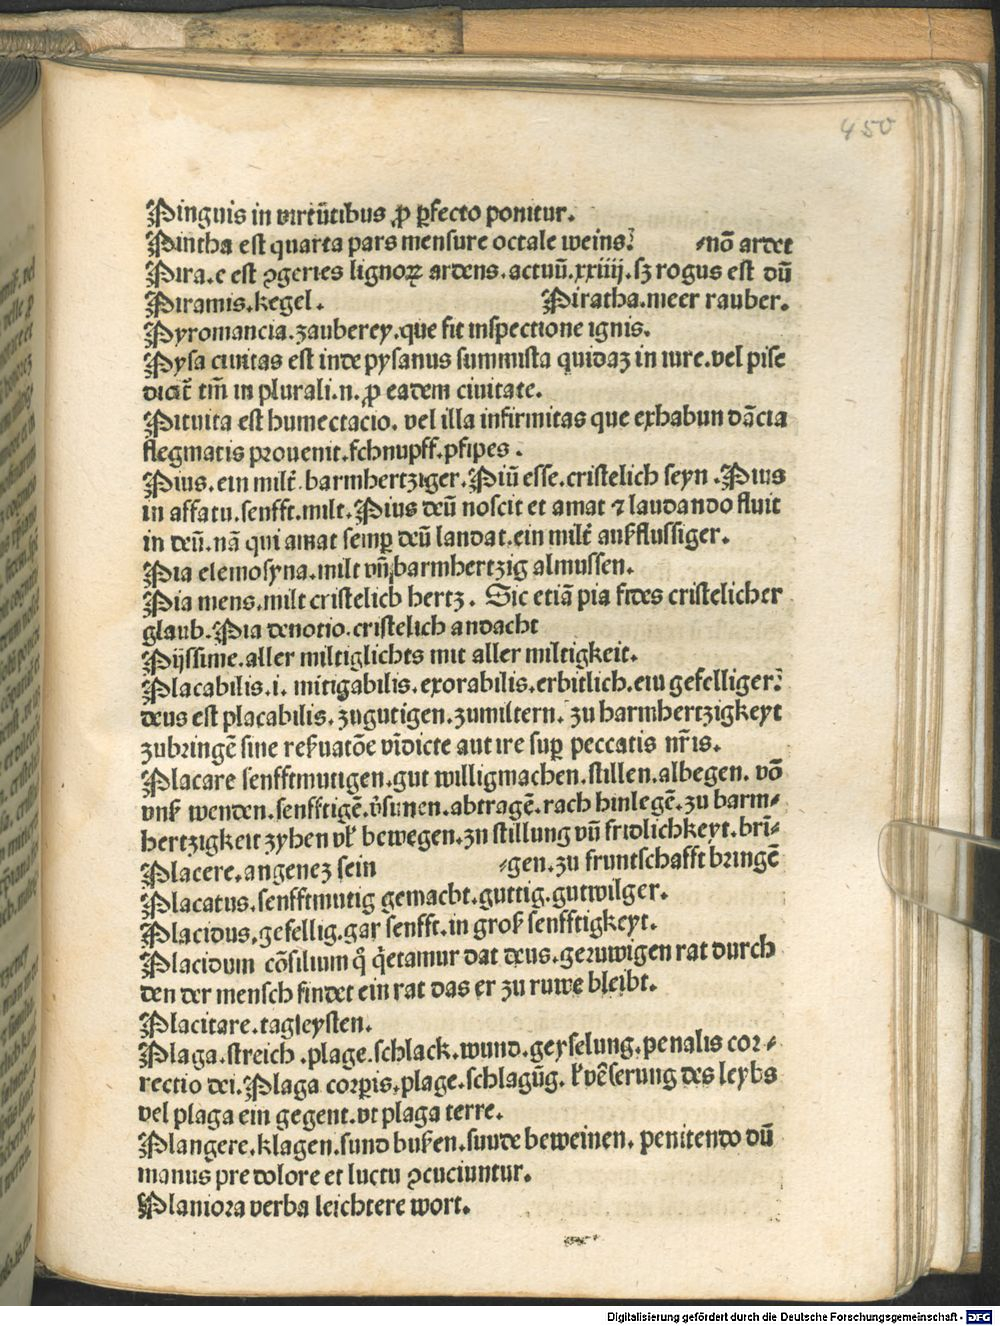 450
Pinguis in virtūtibus ꝓ ꝑfecto ponitur.
Pintha est quarta pars mensure octale weins. ⸗nō ardet
Pira.e est ꝯgeries lignoꝝ ardens.actuū.xxiiij.sꝫ rogus est dū
Piramis.kegel. Piratha.meer rauber.
Pyromancia.zauberey.que fit inspectione ignis.
Pysa ciuitas est inde pysanus summista quidaꝫ in iure.vel pise
dicūt̄ tm̄ in plurali.n.ꝓ eadem ciuitate.
Pituita est humectacio. vel illa infirmitas que exhabun dācia
flegmatis prouenit.schnupff.pfipes.
Pius.ein milt̄.barmhertziger.Piū esse.cristelich seyn.Pius
in affatu.senfft.milt.Pius deū noscit et amat ⁊ laudando fluit
in deū.nā qui amat semꝑ deū landat.ein milt̄ außflussiger.
Pia elemosyna.milt vn̄ barmhertzig almussen.
Pia mens.milt cristelich hertz. Sic etiā pia fides cristelicher
glaub.Pia deuotio.cristelich andacht
Pijssime.aller miltiglichts mit aller miltigkeit.
Placabilis.i. mitigabilis.exorabilis.erbitlich.eiu gefelliger.
deus est placabilis.zugutigen.zumiltern. zu barmhertzigkeyt
zubringē sine reßuatōe vīdicte aut ire suꝑ peccatis nr̄is.
Placare senfftmutigen.gut willigmachen.stillen.albegen. vō
vnß wenden.senfftigē.v̓sunen.abtragē.rach hinlegē.zu barm⸗
hertzigkeit zyhen vl̓ bewegen.zu stillung vn̄ fridlichkeyt.brī⸗
Placere.angenez sein ⸗gen.zu fruntschafft bringē
Placatus.senfftmutig gemacht.guttig.gutwilger.
Placidus.gefellig.gar senfft.in groß senfftigkeyt.
Placidum cōsilium qͦ qͥetamur dat deus.geruwigen rat durch
den der mensch findet ein rat das er zu ruwe bleibt.
Placitare.tagleysten.
Plaga.streich.plage.schlack.wund.geyselung.penalis cor⸗
rectio dei.Plaga corꝑis.plage.schlagūg. l̓ vēserung des leybs
vel plaga ein gegent.vt plaga terre.
Plangere.klagen.sund bußen.suude beweinen. penitendo dū
manus pre dolore et luctu ꝯcuciuntur.
Planiora verba leichtere wort.
Digitalisierung gefördert durch die Deutsche Forschungsgemeinschaft - DFG